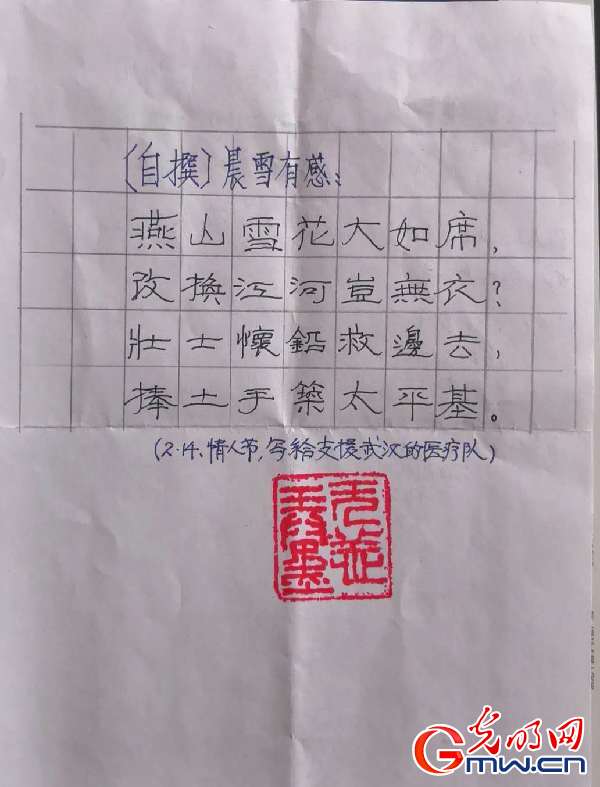 〔自撰〕晨雪有感：
燕山雪花大如席，
改换江河豈無衣？
壯士懷鉛救邊去，
捧土手築太平基。
(2.14、情人节，写给支援武汉的医疗队)
光明网
GMW.cn